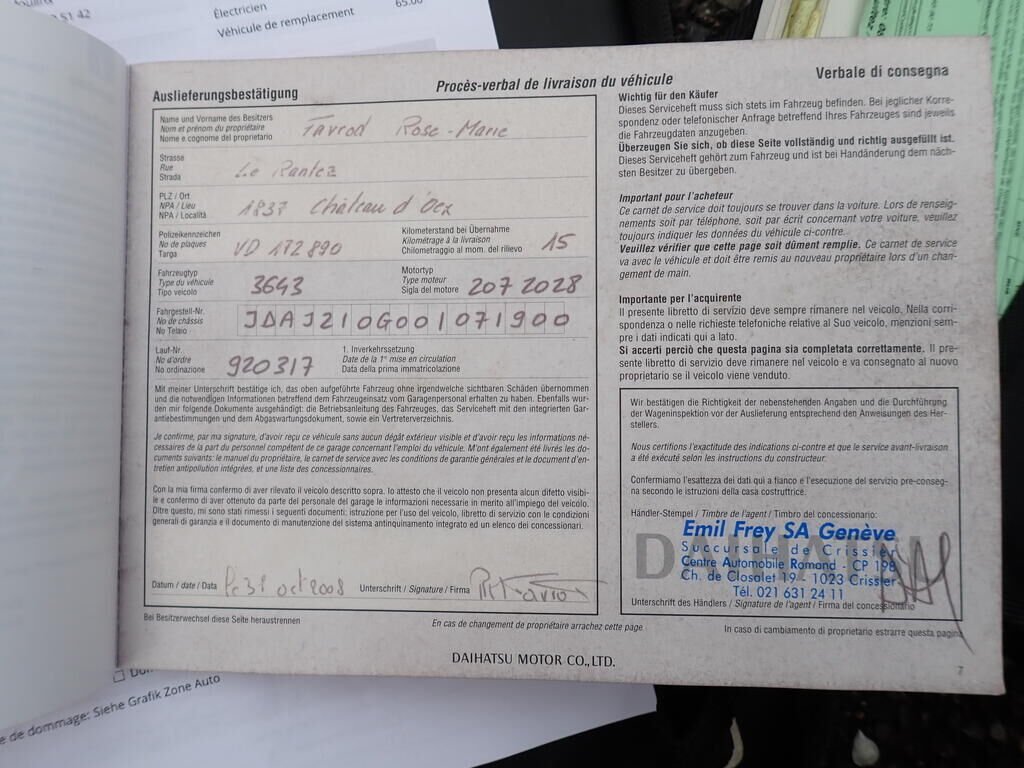 51 42
Électricien
Véhicule de remplacement
65.00
Auslieferungsbestätigung
Procès-verbal de livraison du véhicule
Verbale di consegna
Name und Vorname des Besitzers
Nom et prénom du propriétaire
Nome e cognome del proprietario
Favrod Rose-Marie
Strasse
Rue
Strada
Le Rantez
PLZ / Ort
NPA / Lieu
NPA / Località
1837 Château d'Oex
Polizeikennzeichen
No de plaques
Targa
VD 182 890
Kilometerstand bei Übernahme
Kilométrage à la livraison
Chilometraggio al mom. del rilievo
15
Fahrzeugtyp
Type du véhicule
Tipo veicolo
3643
Motortyp
Type moteur
Sigla del motore
207 2028
Fahrgestell-Nr.
No de châssis
No Telaio
JDAJ210G001071900
Lauf-Nr.
No d'ordre
No ordinazione
920317
1. Inverkehrssetzung
Date de la 1re mise en circulation
Data della prima immatricolazione
Mit meiner Unterschrift bestätige ich, das oben aufgeführte Fahrzeug ohne irgendwelche sichtbaren Schäden übernommen
und die notwendigen Informationen betreffend dem Fahrzeugeinsatz vom Garagenpersonal erhalten zu haben. Ebenfalls wur-
den mir folgende Dokumente ausgehändigt: die Betriebsanleitung des Fahrzeuges, das Serviceheft mit den integrierten Gar-
antiebestimmungen und dem Abgaswartungsdokument, sowie ein Vertreterverzeichnis.
Je confirme, par ma signature, d'avoir reçu ce véhicule sans aucun dégât extérieur visible et d'avoir reçu les informations né-
cessaires de la part du personnel compétent de ce garage concernant l'emploi du véhicule. M'ont également été livrés les do-
cuments suivants: le manuel du propriétaire, le carnet de service avec les conditions de garantie générales et le document d'en-
tretien antipollution intégrées, et une liste des concessionnaires.
Con la mia firma confermo di aver rilevato il veicolo descritto sopra. Io attesto che il veicolo non presenta alcun difetto visibi-
le e confermo di aver ottenuto da parte del personale del garage le informazioni necessarie in merito all'impiego del veicolo.
Oltre questo, mi sono stati rimessi i seguenti documenti: istruzione per l'uso del veicolo, libretto di servizio con le condizioni
generali di garanzia e il documento di manutenzione del sistema antinquinamento integrato ed un elenco dei concessionari.
Datum / date / Data
le 31 oct 2008
Unterschrift / Signature / Firma
Bei Besitzerwechsel diese Seite heraustrennen
En cas de changement de propriétaire arrachez cette page
In caso di cambiamento di proprietario estrarre questa pagina
Wichtig für den Käufer
Dieses Serviceheft muss sich stets im Fahrzeug befinden. Bei jeglicher Korre-
spondenz oder telefonischer Anfrage betreffend Ihres Fahrzeuges sind jeweils
die Fahrzeugdaten anzugeben.
Überzeugen Sie sich, ob diese Seite vollständig und richtig ausgefüllt ist.
Dieses Serviceheft gehört zum Fahrzeug und ist bei Handänderung dem näch-
sten Besitzer zu übergeben.
Important pour l'acheteur
Ce carnet de service doit toujours se trouver dans la voiture. Lors de renseig-
nements soit par téléphone, soit par écrit concernant votre voiture, veuillez
toujours indiquer les données du véhicule ci-contre.
Veuillez vérifier que cette page soit dûment remplie. Ce carnet de service
va avec le véhicule et doit être remis au nouveau propriétaire lors d'un chan-
gement de main.
Importante per l'acquirente
Il presente libretto di servizio deve sempre rimanere nel veicolo. Nella corri-
spondenza o nelle richieste telefoniche relative al Suo veicolo, menzioni sem-
pre i dati indicati qui a lato.
Si accerti perciò che questa pagina sia completata correttamente. Il pre-
sente libretto di servizio deve rimanere nel veicolo e va consegnato al nuovo
proprietario se il veicolo viene venduto.
Wir bestätigen die Richtigkeit der nebenstehenden Angaben und die Durchführung
der Wageninspektion vor der Auslieferung entsprechend den Anweisungen des Her-
stellers.
Nous certifions l'exactitude des indications ci-contre et que le service avant-livraison
a été exécuté selon les instructions du constructeur.
Confermiamo l'esattezza dei dati qui a fianco e l'esecuzione del servizio pre-conseg-
na secondo le istruzioni della casa costruttrice.
Händler-Stempel / Timbre de l'agent / Timbro del concessionario:
DAIHATSU
Emil Frey SA Genève
Succursale de Crissier
Centre Automobile Romand - CP 198
Ch. de Closalet 19 - 1023 Crissier
Tél. 021 631 24 11
Unterschrift des Händlers / Signature de l'agent / Firma del concessionario
DAIHATSU MOTOR CO., LTD.
7
e de dommage: Siehe Grafik Zone Auto